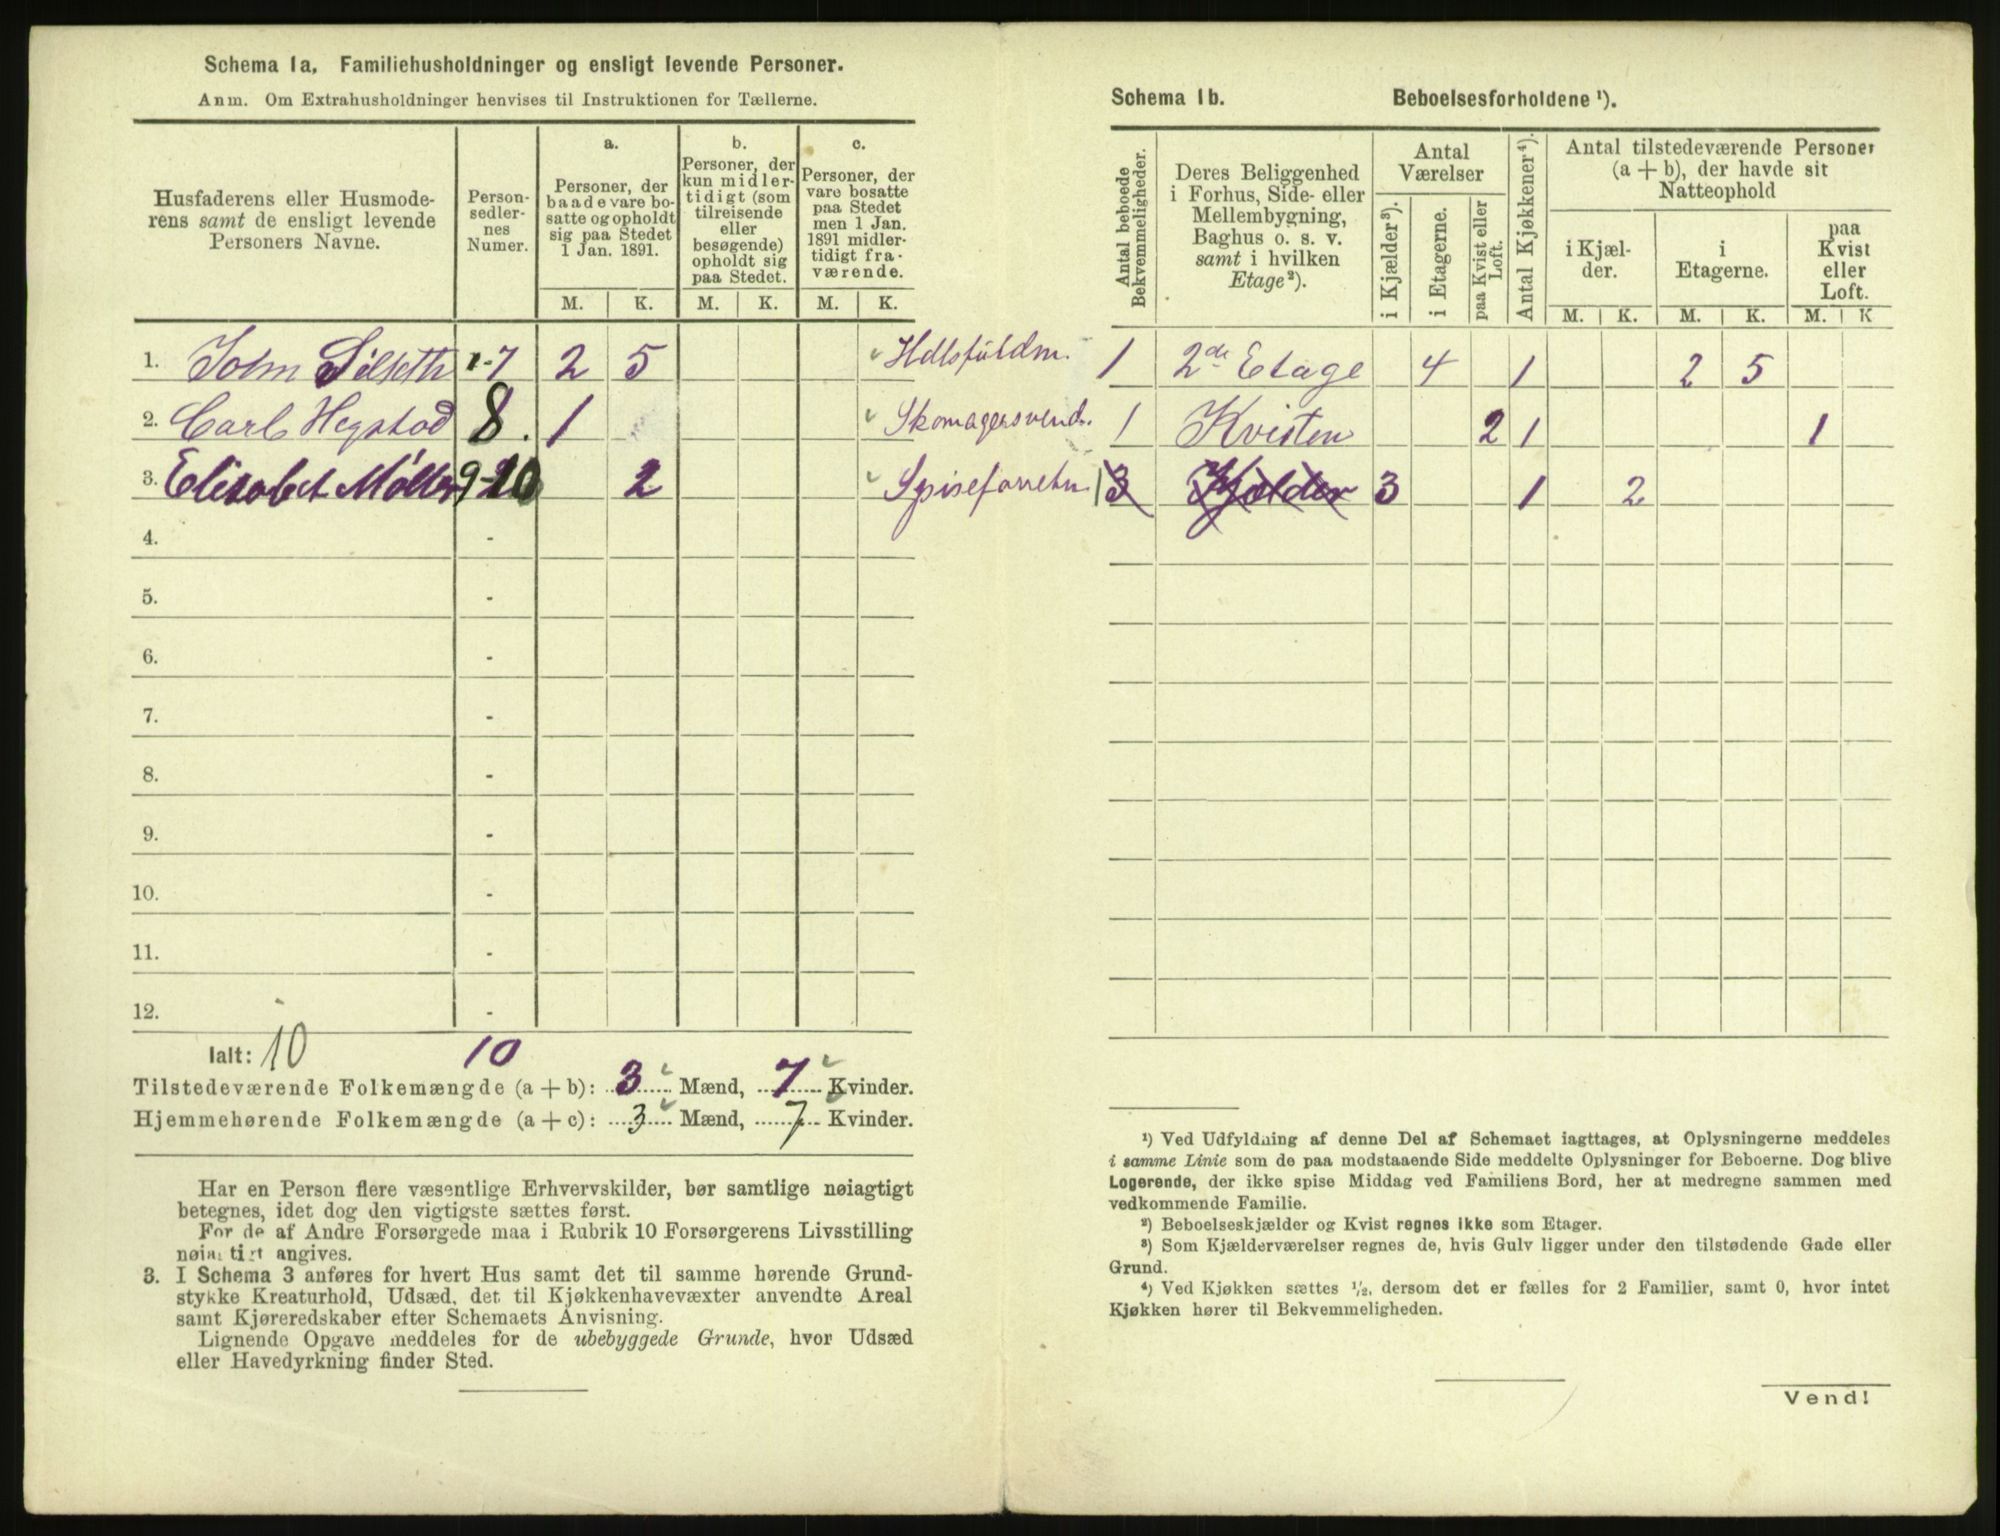 Schema 1a. Familiehusholdninger og ensligt levende Personer.
Anm. Om Extrahusholdninger henvises til Instruktionen for Tællerne.
Husfaderens eller Husmode-
rens samt de ensligt levende
Personers Navne.
Person-
sedler-
nes
Numer.
a.
Personer, der
baade vare bo-
satte og opholdt
sig paa Stedet
1 Jan. 1891.
b.
Personer, der
kun midler-
tidigt (som
tilreisende
eller
besøgende)
opholdt sig
paa Stedet.
c.
Personer, der
vare bosatte
paa Stedet
men 1 Jan.
1891 midler-
tidigt fra-
værende.
M. K. M. K. M. K.
1. John Silseth 1-7 2 5 Hdlsfuldm.
2. Carl Hegstad 8. 1 Skomagersvend.
3. Elisabet Møller 9-10 2 Spiseforretn.
4. -
5. -
6. -
7. -
8. -
9. -
10. -
11. -
12. -
Ialt: 10 10
Tilstedeværende Folkemængde (a + b): 3 Mænd, 7 Kvinder.
Hjemmehørende Folkemængde (a + c): 3 Mænd, 7 Kvinder.
Har en Person flere væsentlige Erhvervskilder, bør samtlige nøiagtigt
betegnes, idet dog den vigtigste sættes først.
For de af Andre Forsørgede maa i Rubrik 10 Forsørgerens Livsstilling
nøiagtigt angives.
3. I Schema 3 anføres for hvert Hus samt det til samme hørende Grund-
stykke Kreaturhold, Udsæd, det til Kjøkkenhavevæxter anvendte Areal
samt Kjøreredskaber efter Schemaets Anvisning.
Lignende Opgave meddeles for de ubebyggede Grunde, hvor Udsæd
eller Havedyrkning finder Sted.
Schema 1b. Beboelsesforholdene ¹).
Antal beboede
Bekvemmeligheder.
Deres Beliggenhed
i Forhus, Side- eller
Mellembygning,
Baghus o. s. v.
samt i hvilken
Etage²).
Antal
Værelser
i Kjælder³).
i Etagerne.
paa Kvist eller
Loft.
Antal Kjøkkener⁴).
Antal tilstedeværende Personer
(a + b), der havde sit
Natteophold
i Kjæl-
der.
i
Etagerne.
paa
Kvist
eller
Loft.
M. K. M. K. M. K
1 2de Etage 4 1 2 5
1 Kvisten 2 1 1
1 3 Kjælder 3 1 2
¹) Ved Udfyldning af denne Del af Schemaet iagttages, at Oplysningerne meddeles
i samme Linie som de paa modstaaende Side meddelte Oplysninger for Beboerne. Dog blive
Logerende, der ikke spise Middag ved Familiens Bord, her at medregne sammen med
vedkommende Familie.
²) Beboelseskjælder og Kvist regnes ikke som Etager.
³) Som Kjælderværelser regnes de, hvis Gulv ligger under den tilstødende Gade eller
Grund.
⁴) Ved Kjøkken sættes ¹/₂, dersom det er fælles for 2 Familier, samt 0, hvor intet
Kjøkken hører til Bekvemmeligheden.
Vend!